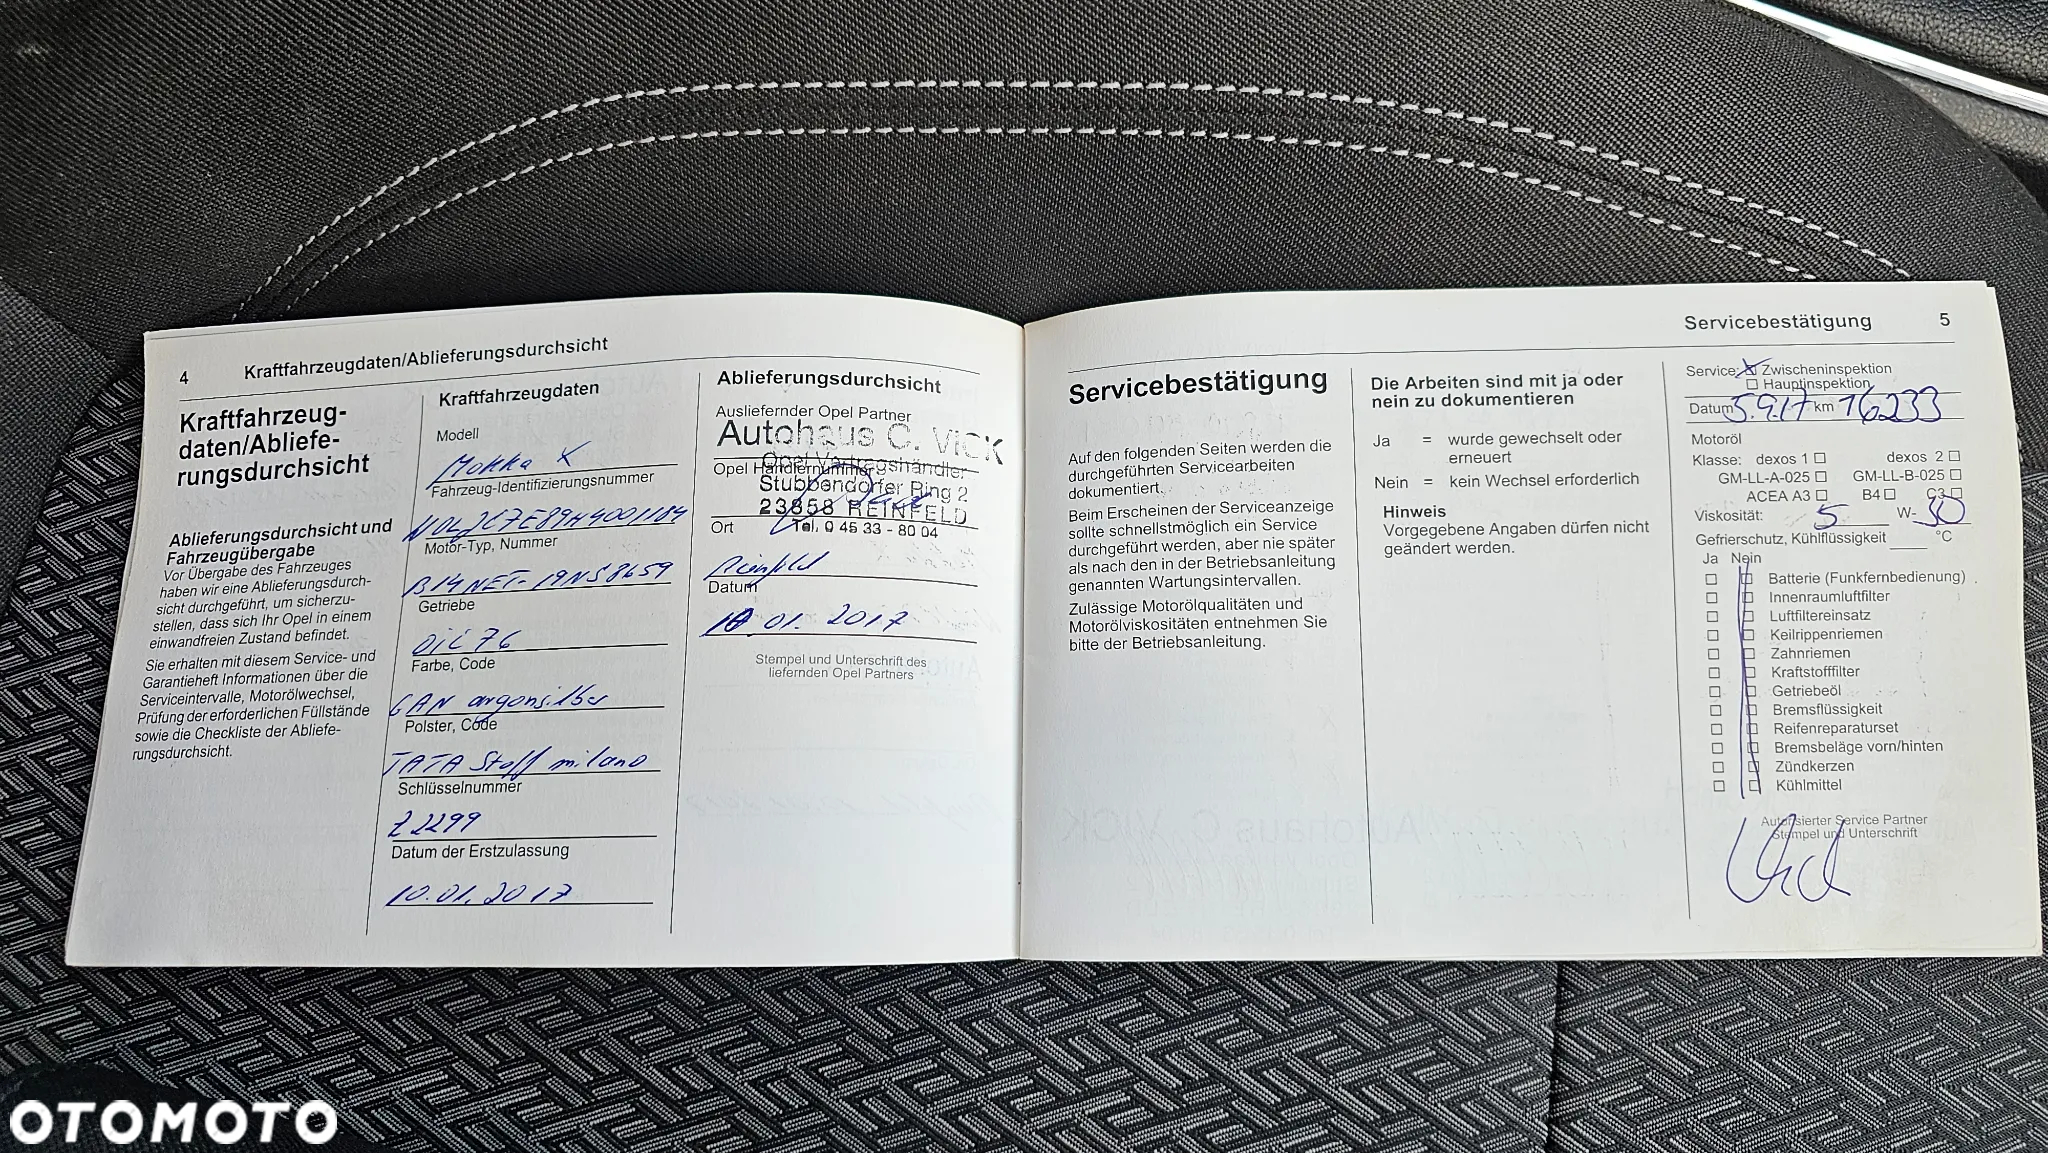 4
Kraftfahrzeugdaten/Ablieferungsdurchsicht
Kraftfahrzeug-
daten/Abliefe-
rungsdurchsicht
Ablieferungsdurchsicht und
Fahrzeugübergabe
Vor Übergabe des Fahrzeuges
haben wir eine Ablieferungsdurch-
sicht durchgeführt, um sicherzu-
stellen, dass sich Ihr Opel in einem
einwandfreien Zustand befindet.
Sie erhalten mit diesem Service- und
Garantieheft Informationen über die
Serviceintervalle, Motorölwechsel,
Prüfung der erforderlichen Füllstände
sowie die Checkliste der Abliefe-
rungsdurchsicht.
Kraftfahrzeugdaten
Modell
Mokka X
Fahrzeug-Identifizierungsnummer
Motor-Typ, Nummer
B14NET-19NS8659
Getriebe
Farbe, Code
GAN argonsilber
Polster, Code
TATA Stoff milano
Schlüsselnummer
Z2299
Datum der Erstzulassung
10.01.2017
Ablieferungsdurchsicht
Ausliefernder Opel Partner
Autohaus C. VICK
Opel Vertragshändler
Opel Händlernummer
Stubbendorfer Ring 2
23858 REINFELD
Ort
Tel. 0 45 33 - 80 04
Reinfeld
Datum
10.01.2017
Stempel und Unterschrift des
liefernden Opel Partners
Servicebestätigung
5
Servicebestätigung
Auf den folgenden Seiten werden die
durchgeführten Servicearbeiten
dokumentiert.
Beim Erscheinen der Serviceanzeige
sollte schnellstmöglich ein Service
durchgeführt werden, aber nie später
als nach den in der Betriebsanleitung
genannten Wartungsintervallen.
Zulässige Motorölqualitäten und
Motorölviskositäten entnehmen Sie
bitte der Betriebsanleitung.
Die Arbeiten sind mit ja oder
nein zu dokumentieren
Ja = wurde gewechselt oder
erneuert
Nein = kein Wechsel erforderlich
Hinweis
Vorgegebene Angaben dürfen nicht
geändert werden.
Service: X Zwischeninspektion
Hauptinspektion
Datum 5.9.17 km 16233
Motoröl
Klasse: dexos 1 dexos 2
GM-LL-A-025 GM-LL-B-025
ACEA A3 B4 C3
Viskosität: 5 W- 30
Gefrierschutz, Kühlflüssigkeit °C
Ja Nein
Batterie (Funkfernbedienung)
Innenraumluftfilter
Luftfiltereinsatz
Keilrippenriemen
Zahnriemen
Kraftstofffilter
Getriebeöl
Bremsflüssigkeit
Reifenreparaturset
Bremsbeläge vorn/hinten
Zündkerzen
Kühlmittel
Autorisierter Service Partner
Stempel und Unterschrift
OTOMOTO